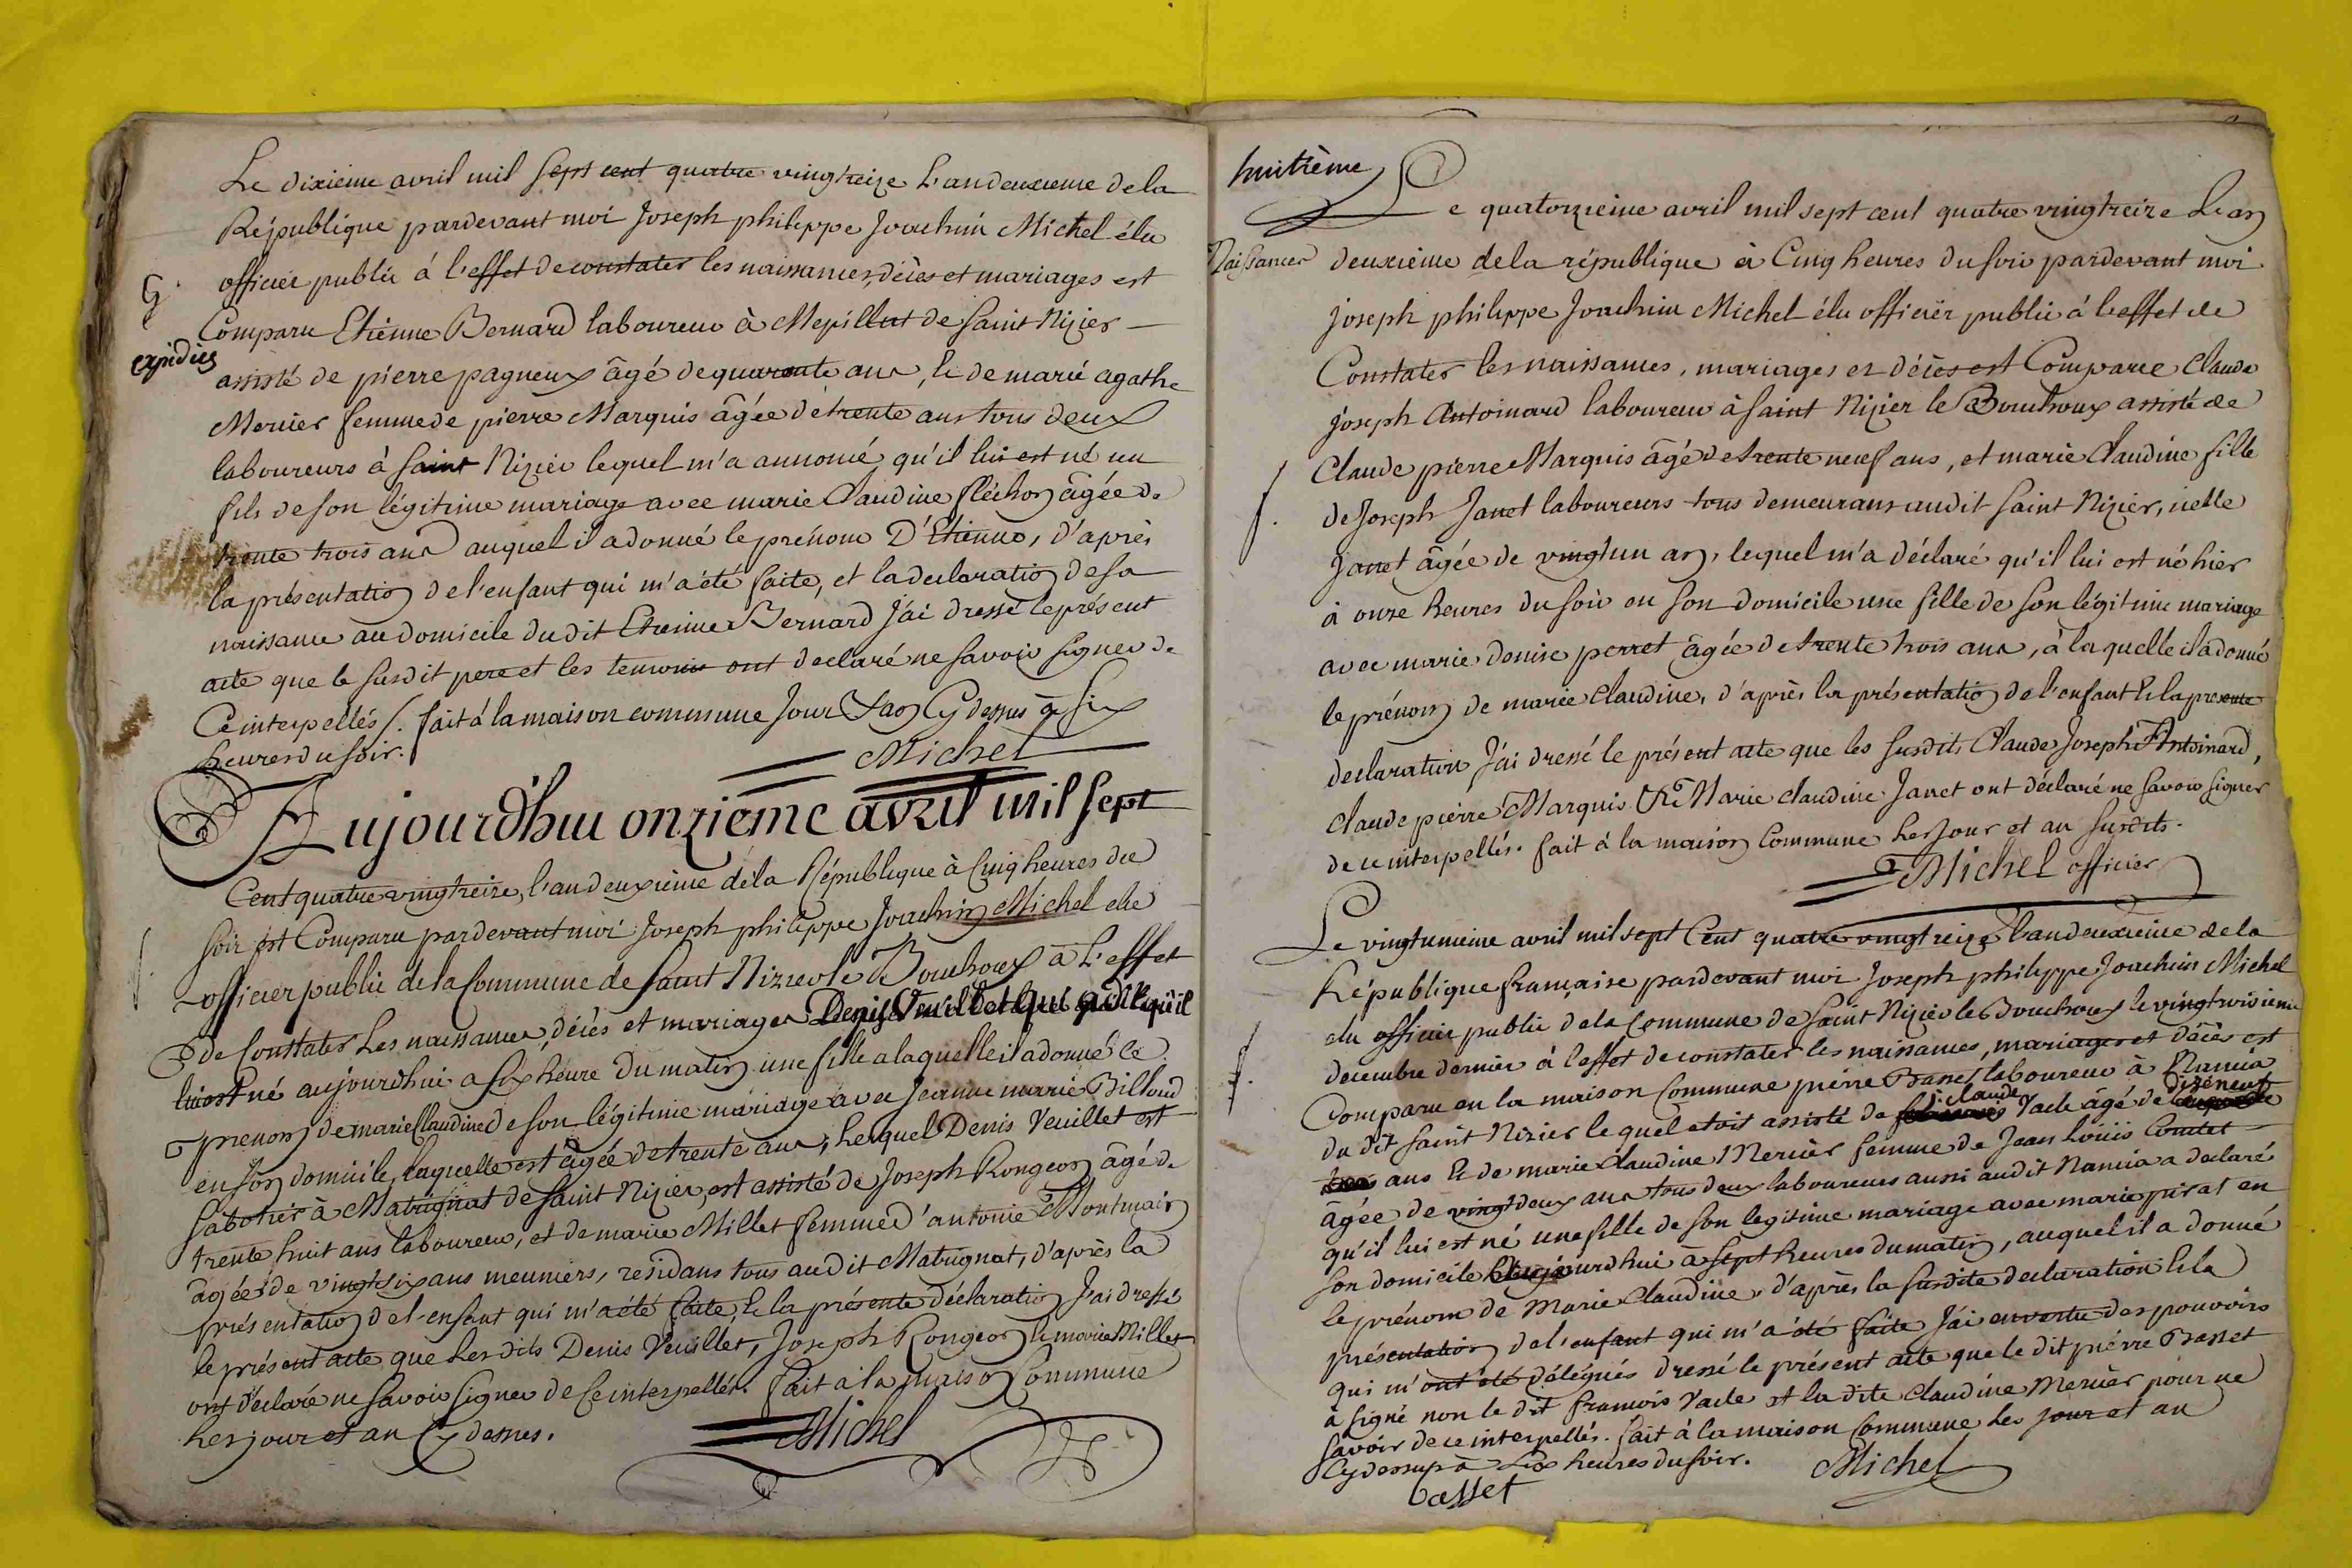 Le dixieme avril mil sept cent quatre vingtreize L'an deuxieme de la
République pardevant moi Joseph philippe Joachim Michel élu
officier public á l'effet de constater les naissances, décès et mariages est
G.
Comparu Etienne Bernard laboureur à Mepillat de Saint Nizier
expidiés
assisté de pierre pagneux âgé de quarante ans, & de marie agathe
Mercier femme de pierre Marquis âgée de trente ans tous deux
laboureurs à Saint Nizier lequel m'a annoncé qu'il lui est né un
fils de son légitime mariage avec marie Claudine fléchon âgée de
trente trois ans auquel il a donné le prénom D'Etienne, d'après
la présentation de l'enfant qui m'a été faite, et la declaration de sa
naissance au domicile du dit Etienne Bernard j'ai dressé le présent
acte que le susdit pere et les temoins ont declaré ne savoir signer de
Ce interpellés /. fait á la maison commune Jour & an Cy dessus à six
heures du soir.
Michel
Aujourd'hui onzieme avril mil sept
Cent quatre vingtreize, l'an deuxième de la République à Cinq heures du
soir est Comparu pardevant moi Joseph philippe Joachim Michel elu
officier public de la Commune de Saint Nizier le Bouchoux à L'effet
de Constater Les naissances, décès et mariages Denis Veuillet qui a dit qu'il
lui est né aujourdhui a six heure du matin une fille a laquelle il a donné le
prenom de marie Claudine de son légitime mariage avec Jeanne marie Billoud
en son domicile, laquelle est âgée de trente ans, Lesquel Denis Veuillet est
Sabotier à Matrignat de Saint Nizier, est assisté de Joseph Rongeon âgé de
trente huit ans laboureur, et de marie Millet femme d'antoine Montmain
âgée de vingt six ans meuniers, residans tous au dit Matrignat, d'après la
présentation de l'enfant qui m'a été faite, & la présente déclaration J'ai dressé
le présent acte que Les dits Denis Veuillet, Joseph Rongeon & marie Millet
ont déclaré ne savoir signer de Ce interpellés. fait a la maison Commune
Les jour et an Cy dessus.
Michel
huitième
Le quatorzieme avril mil sept cent quatre vingtreize L'an
Naissances
deuxième de la république à Cinq heures du soir pardevant moi
joseph philippe Joachim Michel élu officier public á l'effet de
Constater les naissances, mariages et décès est Comparu Claude
joseph Antoinard laboureur à Saint Nizier le Bouchoux assisté de
Claude pierre Marquis âgé de trente neuf ans, et marie Claudine fille
de Joseph Janet laboureurs tous demeurans audit Saint Nizier, icelle
Janet âgée de vingt un an, lequel m'a déclaré qu'il lui est né hier
à onze heures du soir en son domicile une fille de son légitime mariage
avec marie denise perret âgée de trente trois ans, à laquelle il a donné
le prénom de marie Claudine, d'après la présentation de l'enfant & la presente
declaration j'ai dressé le présent acte que les susdits Claude Joseph Antoinard,
Claude pierre Marquis & Marie claudine Janet ont déclaré ne savoir signer
de ce interpellés. fait á la maison Commune Les Jour et an susdits.
Michel officier
Le vingtunieme avril mil sept Cent quatre vingt treize L'an deuxieme de la
République française pardevant moi Joseph philippe Joachim Michel
élu officier public de la Commune de Saint Nizier le Bouchoux le vingt troisieme
decembre dernier à l'effet de constater les naissances, mariages et décès est
Comparu en la maison Commune pierre Basset laboureur à Nancia
du dit Saint Nizier lequel etoit assisté de claude Vacle âgé de dixeneuf
ans & de marie Claudine Mercier femme de Jean Loüis Comtet
âgée de vingt deux ans tous deux laboureurs aussi audit Nancia a declaré
qu'il lui est né une fille de son legitime mariage avec marie pirat en
son domicile aujourdhui à sept heures du matin, auquel il a donné
le prénom de Marie Claudine, d'après la susdite declaration & la
présentation de l'enfant qui m'a été faite J'ai en vertu des pouvoirs
qui m'ont été délégués dressé le présent acte que le dit piérre Basset
à signé non le dit francois Vacle et la dite Claudine Mercier pour ne
savoir de ce interpellés. fait à la maison Commune Les jour et an
Cy dessus à six heures du soir.
Michel
Basset